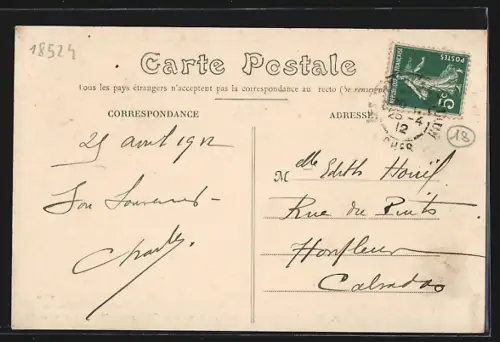 18524
Carte Postale
Tous les pays étrangers n'acceptent pas la correspondance au recto (Se renseigner
CORRESPONDANCE
ADRESSE
POSTES
RÉPUBLIQUE FRANÇAISE
5c
25 -4
12
CHER
18
25 avril 1912
Bon Souvenir
Charles
Melle Edith
Rue du Puits
Honfleur
Calvados